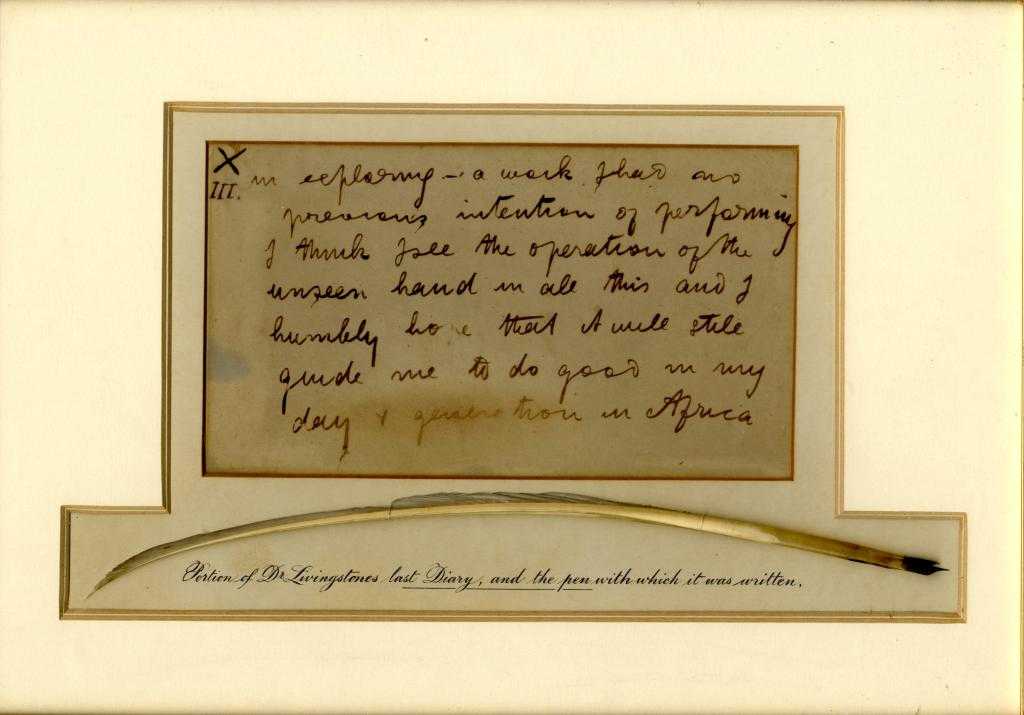 X
III. in exploring - a work I had no
previous intention of performing
I think I see the operation of the
unseen hand in all this and I
humbly hope that it will still
guide me to do good in my
day & generation in Africa
Portion of Dr. Livingstones last Diary, and the pen with which it was written.